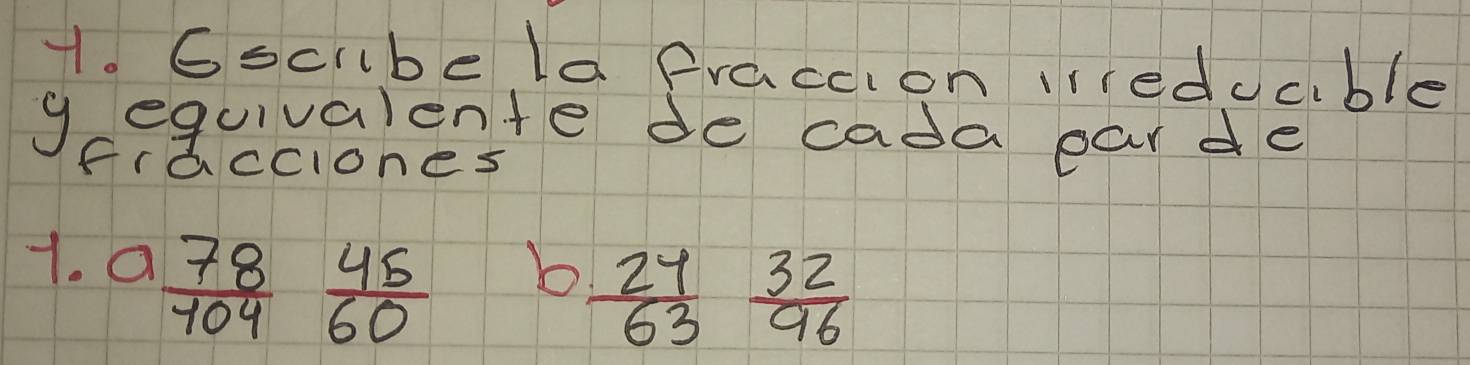 1. Escribe la fraccion irreducible
y equivalente de cada par de
fracciones
1. a 78/104 45/60 b. 21/63 32/96